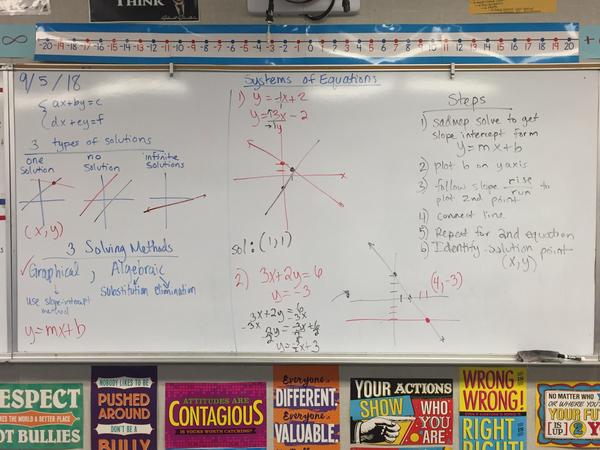 THINK
-20 -19 -18 -17 -16 -15 -14 -13 -12 -11 -10 -9 -8 -7 -6 -5 -4 -3 -2 -1 0 1 2 3 4 5 6 7 8 9 10 11 12 13 14 15 16 17 18 19 20
9/5/18
ax+by=c
dx+ey=f
3 types of solutions
one solution
no solution
infinite solutions
(x,y)
3 Solving Methods
Graphical, Algebraic
Substitution elimination
use slope-intercept method
y=mx+b
Systems of Equations
1) y=-1x+2
y=3x-2
x
y
sol: (1,1)
2) 3x+2y=6
y=-3
3x+2y=6
-3x -3x
y=-3/2x+3
(4,-3)
Steps
1) solve to get
slope intercept form
y=mx+b
2) plot b on y axis
3) follow slope rise/run to
plot 2nd point
4) connect line
5) Repeat for 2nd equation
6) Identify solution point
(x,y)
RESPECT
MAKES THE WORLD A BETTER PLACE
NOT BULLIES
NOBODY LIKES TO BE
PUSHED
AROUND
DON'T BE A
BULLY
ATTITUDES ARE
CONTAGIOUS
IS YOURS WORTH CATCHING?
Everyone is
DIFFERENT.
Everyone is
VALUABLE.
YOUR ACTIONS
SHOW WHO
YOU ARE
WRONG
WRONG!
RIGHT
RIGHT!
NO MATTER WHO
YOUR FUTURE
IS UP 2 YOU